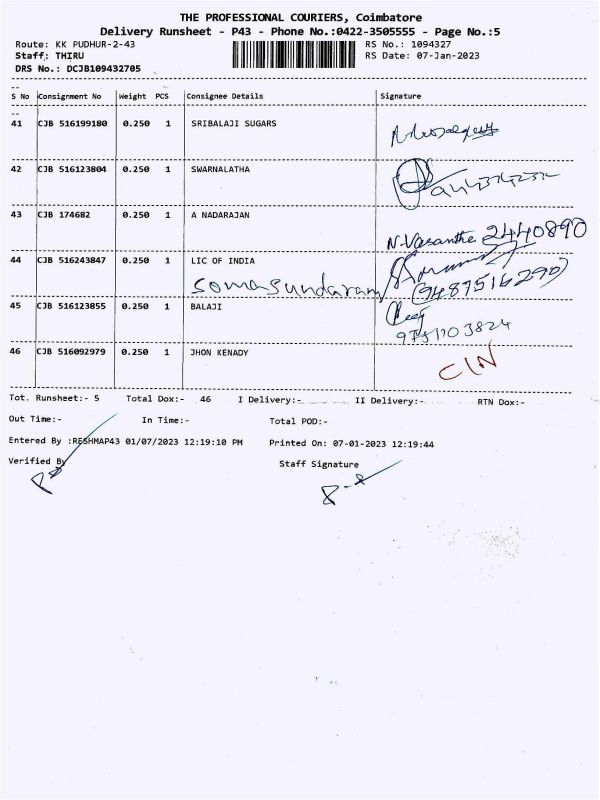 THE PROFESSIONAL COURIERS, Coimbatore
Delivery Runsheet - P43 - Phone No.:0422-3505555 - Page No.:5
Route: KK PUDHUR-2-43 RS No.: 1094327
Staff: THIRU RS Date: 07-Jan-2023
DRS No.: DCJB109432705
S No Consignment No Weight PCS Consignee Details Signature
41 CJB 516199180 0.250 1 SRIBALAJI SUGARS
42 CJB 516123804 0.250 1 SWARNALATHA
43 CJB 174682 0.250 1 A NADARAJAN
N.Vasantha 2440890
44 CJB 516243847 0.250 1 LIC OF INDIA
Somasundaram (9487516290)
45 CJB 516123855 0.250 1 BALAJI
9751703824
46 CJB 516092979 0.250 1 JHON KENADY
CIN
Tot. Runsheet:- 5 Total Dox:- 46 I Delivery:- II Delivery:- RTN Dox:-
Out Time:- In Time:- Total POD:-
Entered By :RESHMAP43 01/07/2023 12:19:10 PM Printed On: 07-01-2023 12:19:44
Verified By Staff Signature